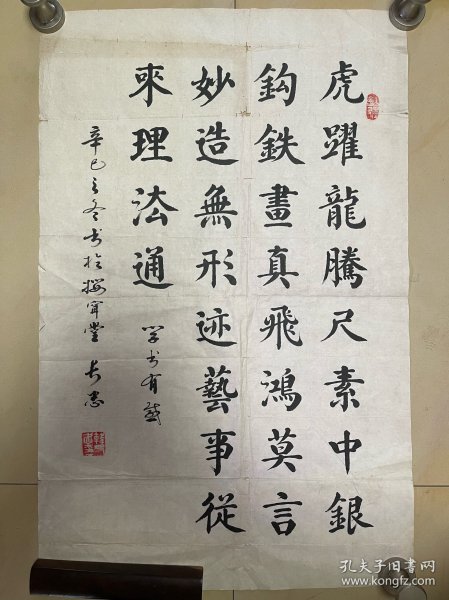 虎躍龍騰尺素中銀
鈎鉄畫真飛鴻莫言
妙造無形迹藝事從
來理法通
学书有感
辛巳之冬书於攖寧堂 长忠
孔夫子旧书网
www.kongfz.com